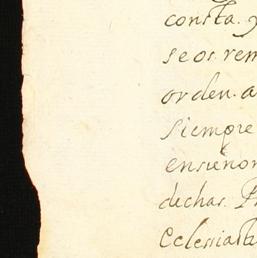 consta. y
se os rem
orden. a
siempre
en señor
dichas. Pr
Eclesiasti